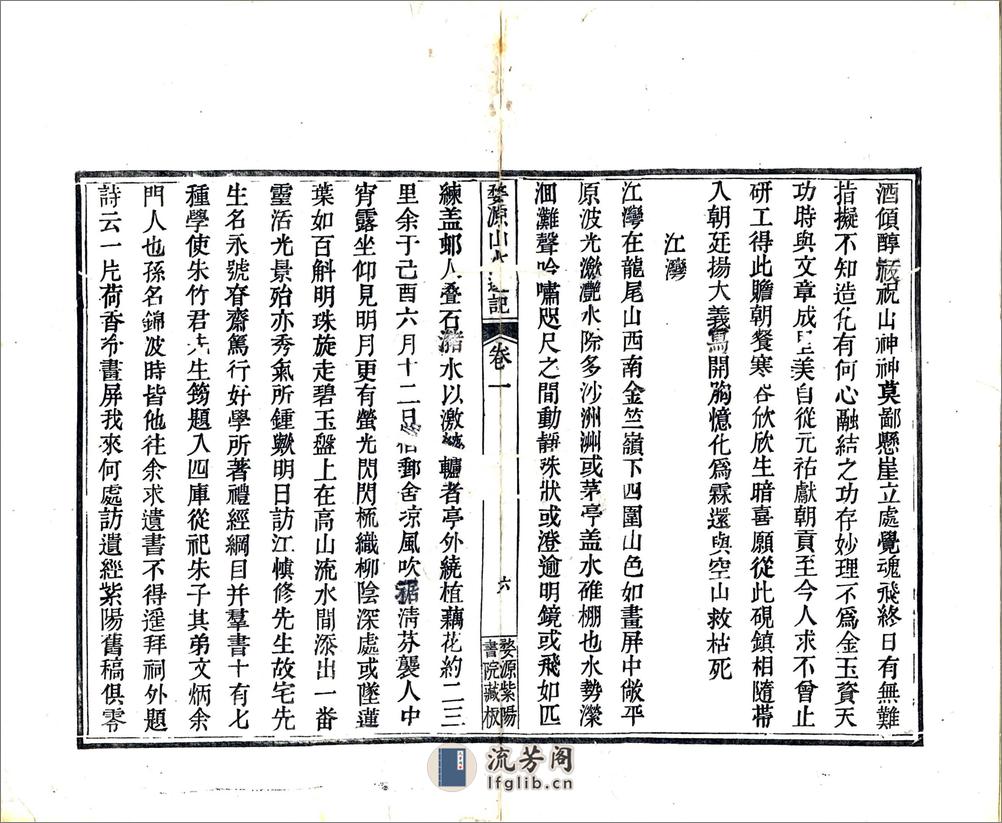 酒傾醇祝山神神莫鄙懸崖立處覺魂飛終日有無難
指擬不知造化有何心融結之功存妙理不爲金玉資天
功時與文章成美自從元祐獻朝貢至今人求不曾止
研工得此贍朝餐寒谷欣欣生暗喜願從此硯鎮相隨帶
入朝廷揚大義爲開胸憶化爲霖還與空山救枯死
江灣
江灣在龍尾山西南金竺嶺下四圍山色如畫屏中敞平
原波光瀲灧水際多沙洲洲或茅亭盖水碓棚也水勢濼
洄灘聲吟嘯咫尺之間動靜殊狀或澄逾明鏡或飛如匹
婺源山水記
卷一
六
婺源紫陽
書院藏板
練盖鄉人叠石瀦水以激轤者亭外繞植藕花約二三
里余于己酉六月十二日宿郵舍凉風吹裾清芬襲人中
宵露坐仰見明月更有螢光閃閃梳織柳陰深處或墜蓮
葉如百斛明珠旋走碧玉盤上在高山流水間添出一番
靈活光景殆亦秀氣所鍾歟明日訪江愼修先生故宅先
生名永號眘齋篤行好學所著禮經綱目并羣書十有七
種學使朱竹君先生筠題入四庫從祀朱子其弟文炳余
門人也孫名錦波時皆他往余求遺書不得遥拜祠外題
詩云一片荷香帀畫屏我來何處訪遺經紫陽舊稿俱零
流芳阁
lfglib.cn